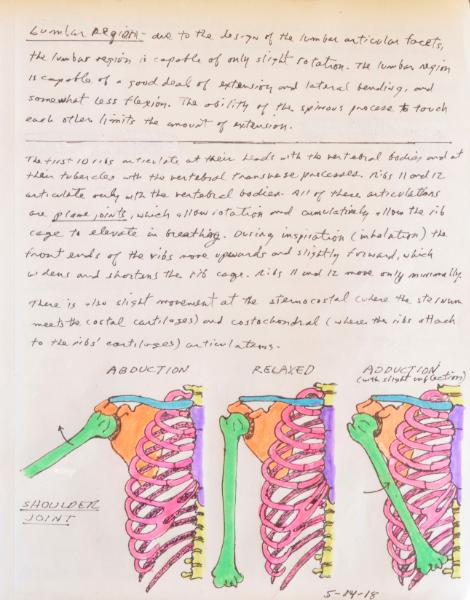 Lumbar Region - due to the design of the lumbar articular facets,
the lumbar region is capable of only slight rotation. The lumbar region
is capable of a good deal of extension and lateral bending, and
somewhat less flexion. The ability of the spinous process to touch
each other limits the amount of extension.
The first 10 ribs articulate at their heads with the vertebral bodies and at
their tubercles with the vertebral transverse processes. Ribs 11 and 12
articulate only with the vertebral bodies. All of these articulations
are plane joints, which allow rotation and cumulatively allow the rib
cage to elevate in breathing. During inspiration (inhalation) the
front ends of the ribs move upwards and slightly forward, which
widens and shortens the rib cage. Ribs 11 and 12 move only minimally.
There is also slight movement at the sternocostal (where the sternum
meets the costal cartilages) and costochondral (where the ribs attach
to the ribs' cartilages) articulations.
ABDUCTION RELAXED ADDUCTION
(with slight
SHOULDER
JOINT
5-14-18